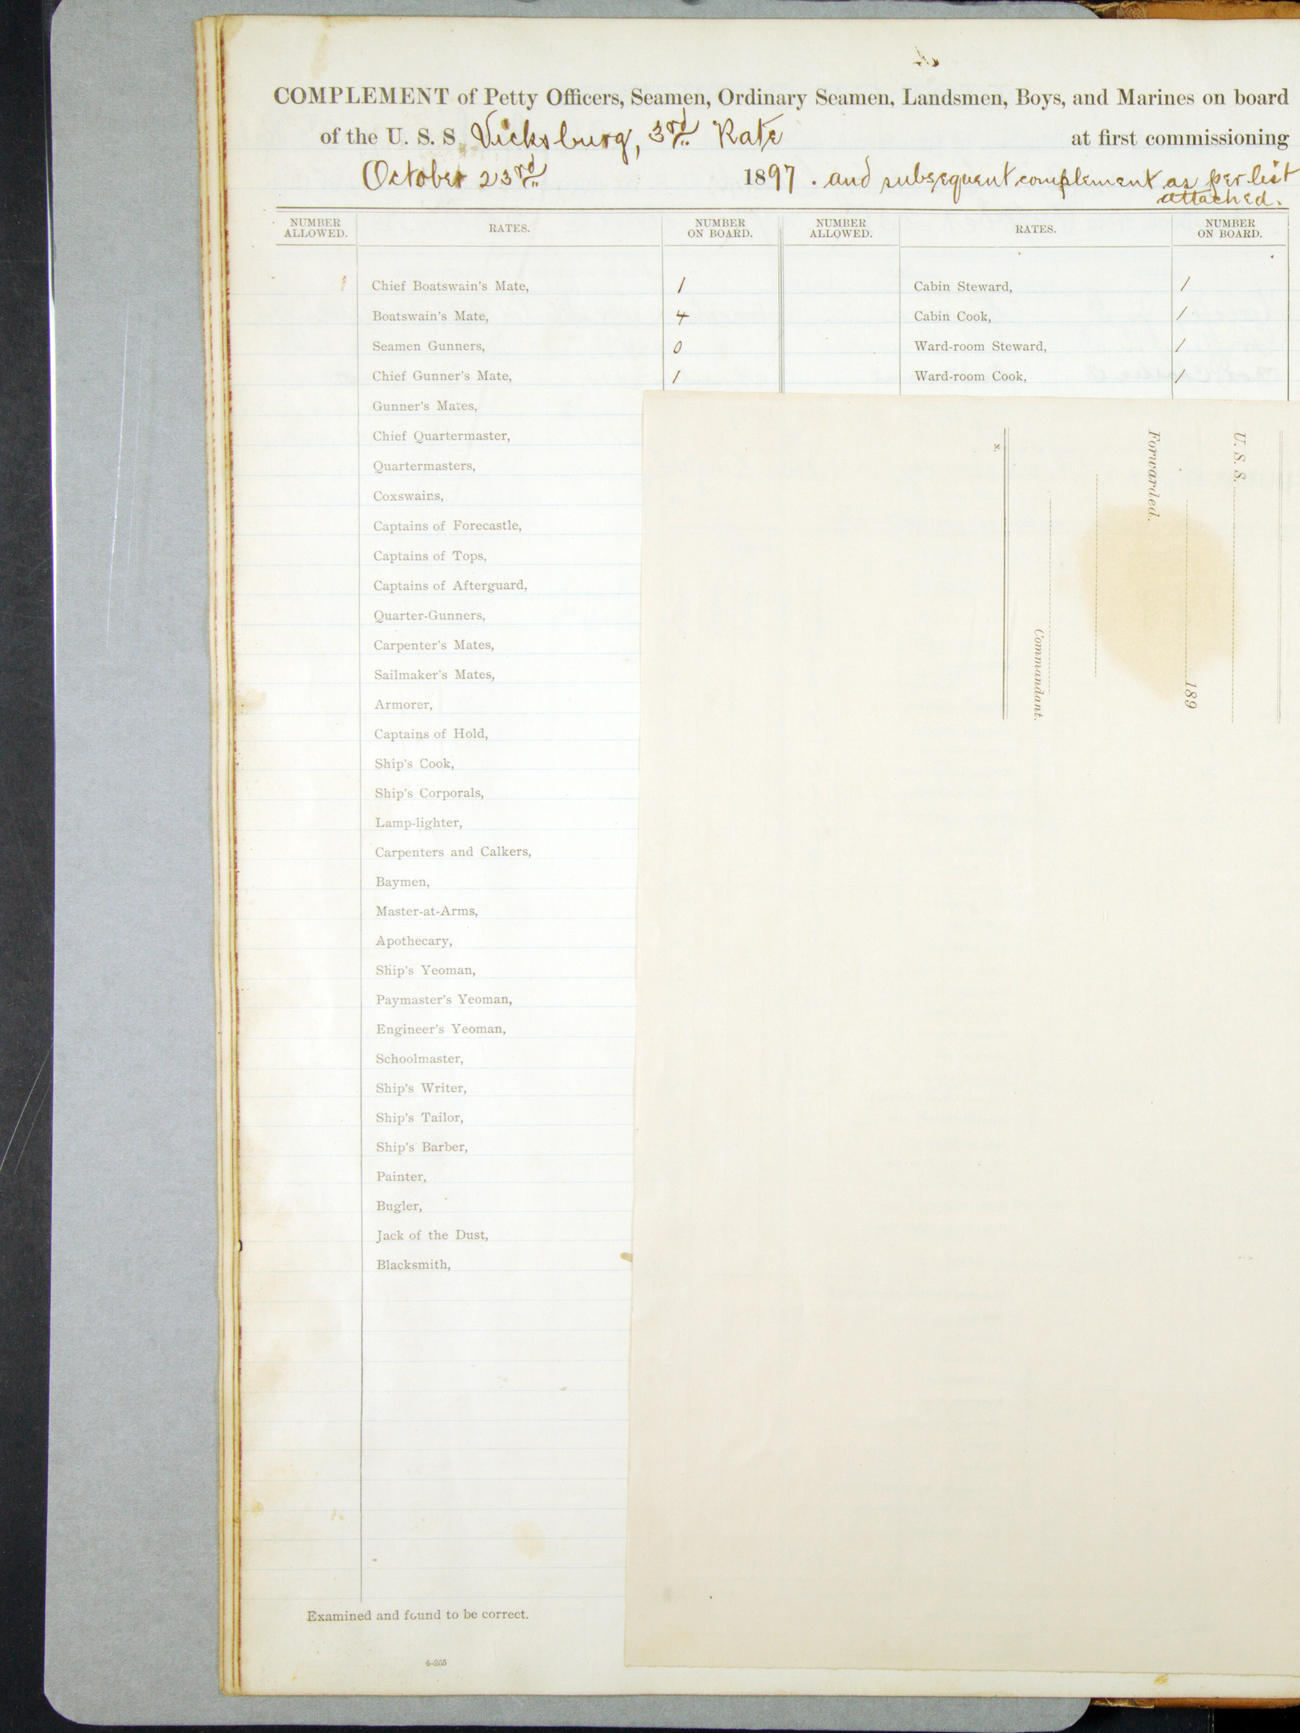 COMPLEMENT of Petty Officers, Seamen, Ordinary Seamen, Landsmen, Boys, and Marines on board
of the U. S. S. Vicksburg, 3rd Rate at first commissioning
October 23rd 1897. and subsequent complement as per list
attached.
NUMBER ALLOWED. RATES. NUMBER ON BOARD. NUMBER ALLOWED. RATES. NUMBER ON BOARD.
1 Chief Boatswain's Mate, 1 Cabin Steward, 1
Boatswain's Mate, 4 Cabin Cook, 1
Seamen Gunners, 0 Ward-room Steward, 1
Chief Gunner's Mate, 1 Ward-room Cook, 1
Gunner's Mates,
Chief Quartermaster,
Quartermasters,
Coxswains,
Captains of Forecastle,
Captains of Tops,
Captains of Afterguard,
Quarter-Gunners,
Carpenter's Mates,
Sailmaker's Mates,
Armorer,
Captains of Hold,
Ship's Cook,
Ship's Corporals,
Lamp-lighter,
Carpenters and Calkers,
Baymen,
Master-at-Arms,
Apothecary,
Ship's Yeoman,
Paymaster's Yeoman,
Engineer's Yeoman,
Schoolmaster,
Ship's Writer,
Ship's Tailor,
Ship's Barber,
Painter,
Bugler,
Jack of the Dust,
Blacksmith,
Examined and found to be correct.
4-265
U. S. S.
189
Forwarded.
Commandant.